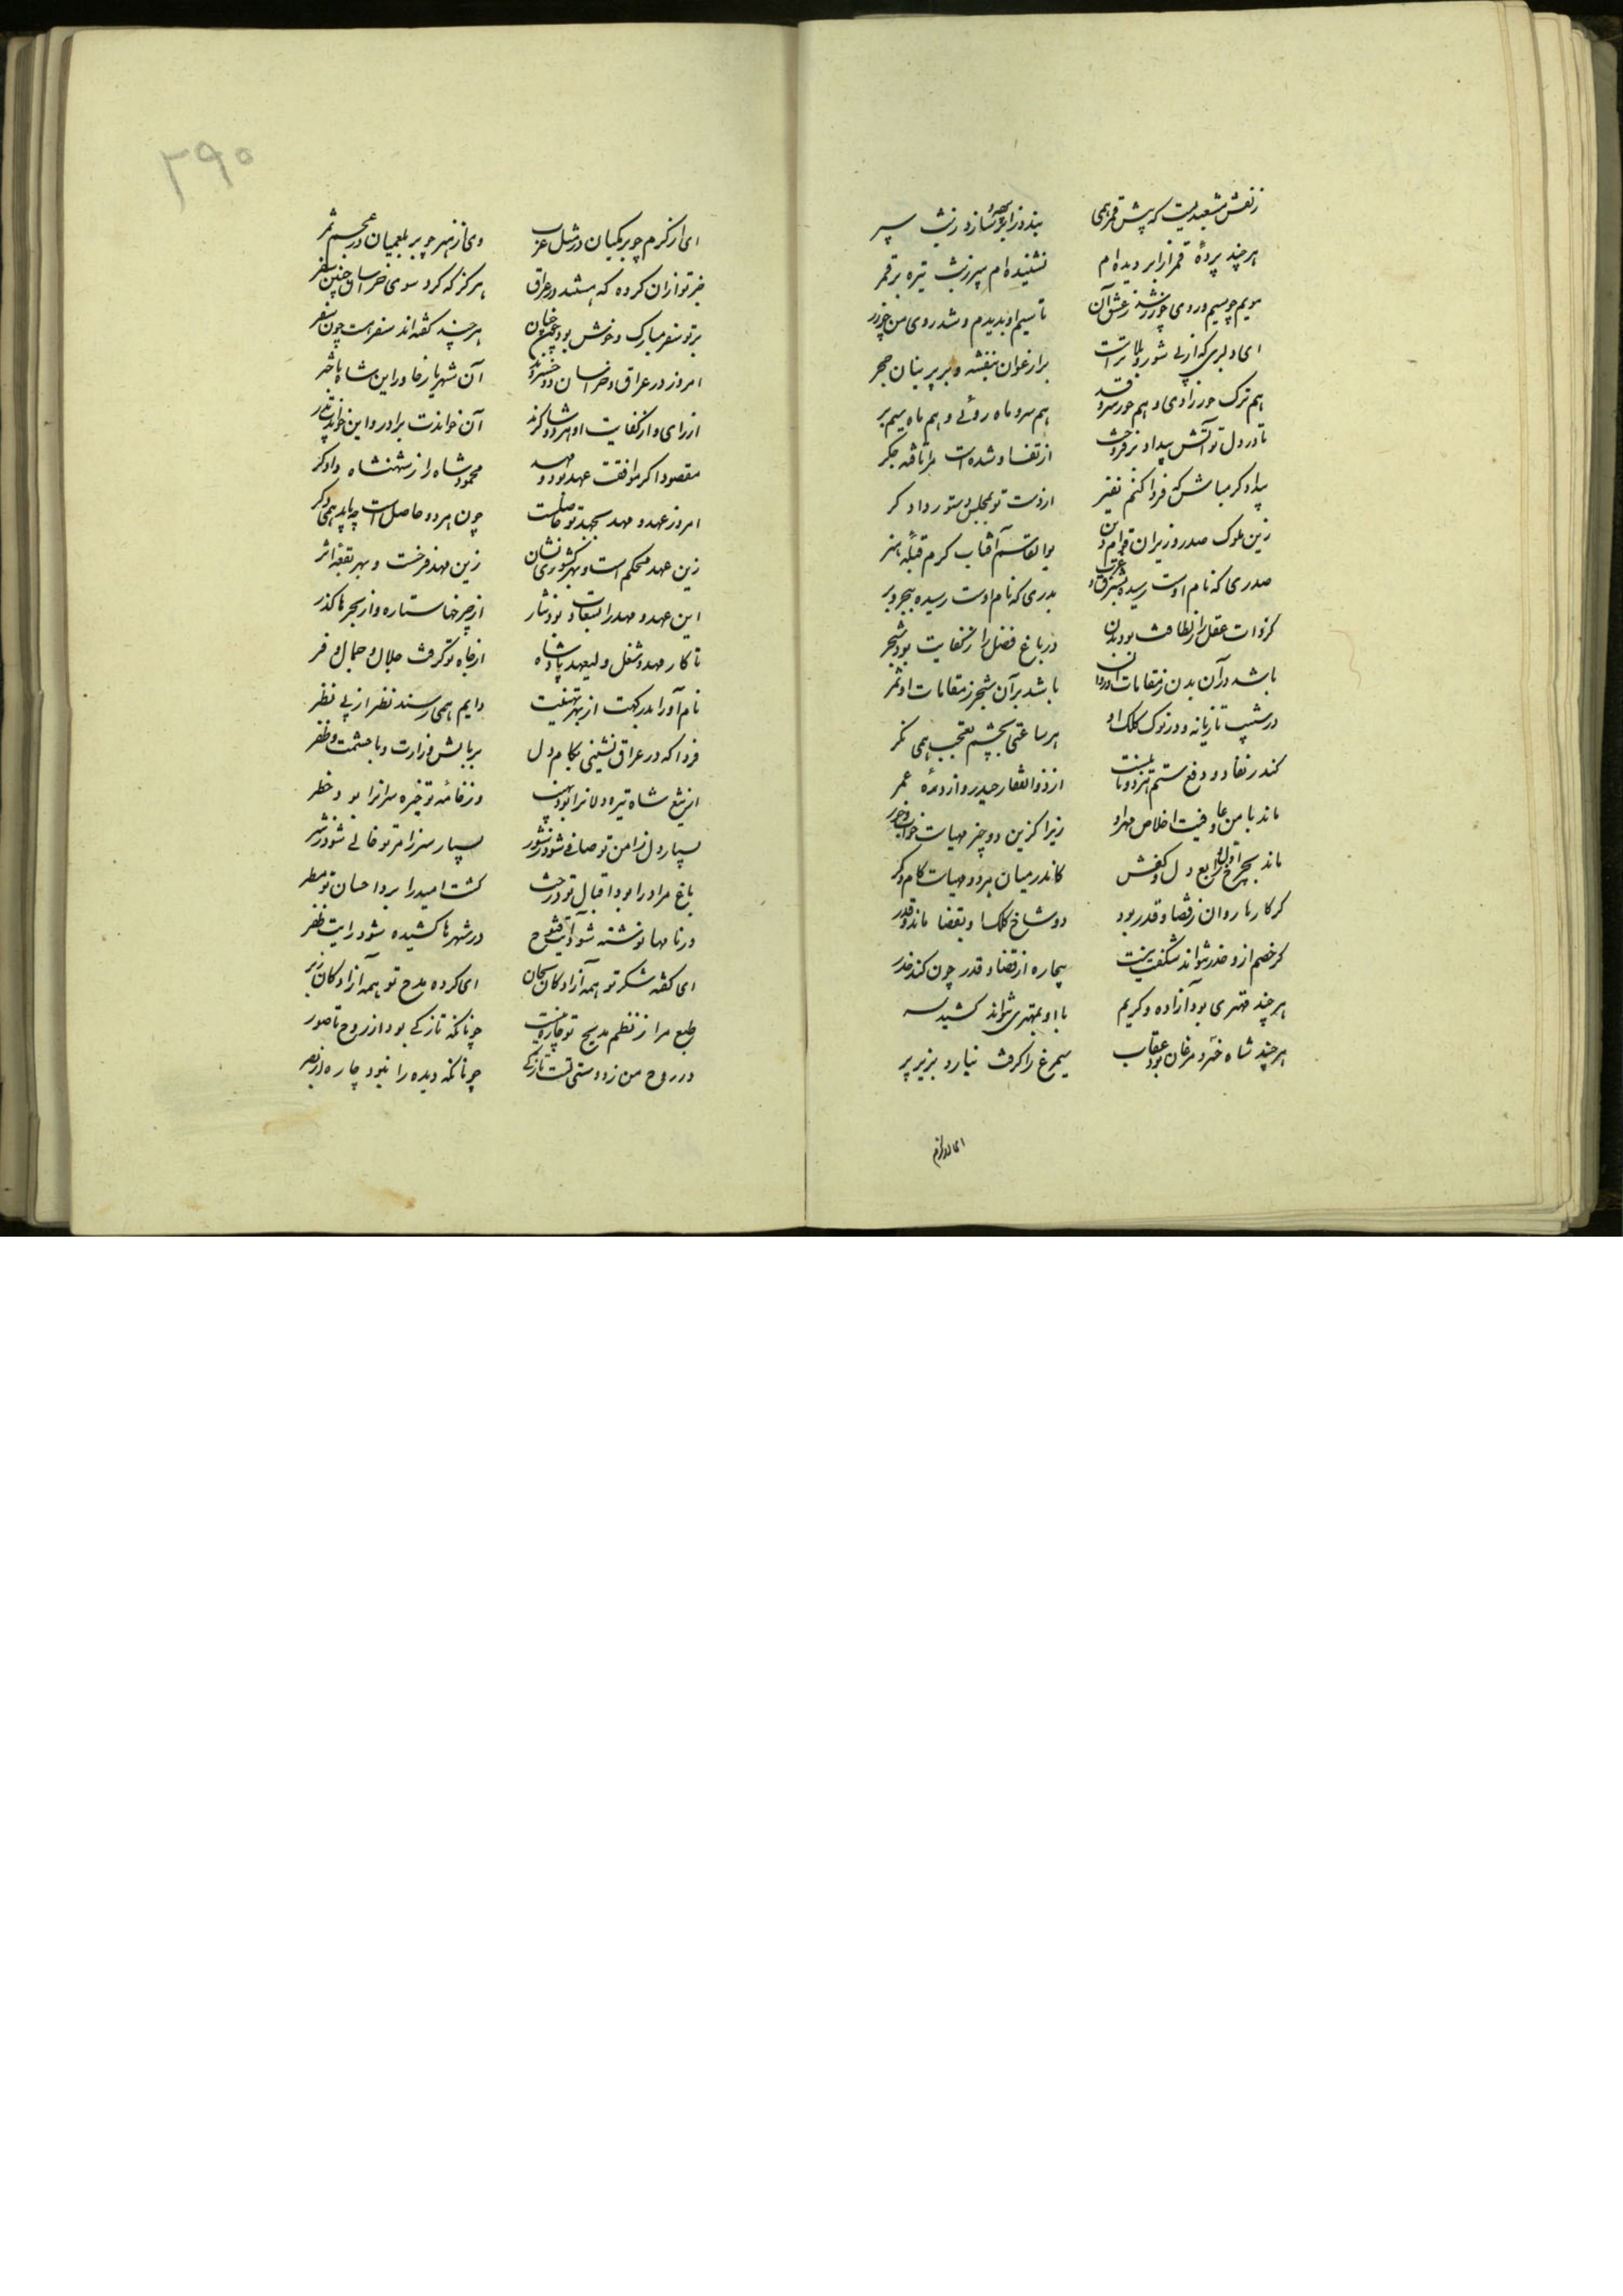 زلفش مشعبدیست که پیش قمر همی بندد ز ابر جوشن و سازد ز شب سپر
هر چند پردهٔ قمر از ابر دیده‌ام نشنیده‌ام سپر ز شب تیره بر قمر
مویم چو سیم و روی چو زر شد ز عشق آن تا سیم او بدیدم و شد روی من چو زر
ای دلبری که از پی شور و بلا تراست بر ارغوان بنفشه و بر پرنیان حجر
هم ترک حور زادی و هم حور سرو قد هم سرو ماه روئی و هم ماه سیم بر
تا در دل تو آتش بیداد بر فروخت از تف او شده است مرا تافته جگر
بیدادگر مباش که فردا کنم نفیر از دست تو بمجلس دستور دادگر
زین ملوک صدر وزیران قوام دین بوالقاسم آفتاب کرم قبله هنر
صدری که نام اوست رسیده بشرق و غرب بدری که نام اوست رسیده ببحر و بر
گر ذات عقل را ز لطافت بود بدن در باغ فضل را ز کفایت بود شجر
باشد در آن بدن ز مقامات او روان باشد بر آن شجر ز مقامات او ثمر
در شیب تازیانه و در نوک کلک او هر ساعتی بچشم تعجب همی نگر
کندر نفاذ و دفع ستم هر دو نایبست از ذوالفقار حیدر و از دره عمر
ماند با من و عافیت اخلاص مهر او زیرا کزین دو چیز مهیاست خواب و خور
ماند بچرخ رابع و دل و کفش کاندر میان هر دو مهیاست کام و کر
گر کارها روان ز قضا و قدر بود دو شاخ کلک او بقضا ماند و قدر
گر خصم ازو حذر نتواند شگفت نیست بیچاره از قضا و قدر چون کند حذر
هر چند مهتری بود آزاده و کریم با او بمهتری نتواند کشید سر
هر چند شاه خنرد مرغان بود عقاب سیمرغ را گرفت نیارد بزیر پر
ای از کرم
۲۹۰
ای از کرم چو برمکیان در مثل عرب وی از هنر چو بلعمیان در عجم ثمر
جز تو ازان گروه که هستند در عراق هرگز که کرد سوی خراسان چنین سفر
بر تو سفر مبارک و خوش بود چون جنان هر چند گفته‌اند سفر هست چون سقر
امروز در عراق و خراسان دو خسروند آن شهریار خاور و این شاه باختر
از رای و از کفایت او هر دو شاکرند آن خواندت برادر و این خواندت پدر
مقصود اگر موافقت عهد بود و مهد محمود شاه را ز شهنشاه دادگر
امروز عهد و مهد بجهد تو حاصلست چون هر دو حاصل است چه باید همی دگر
زین عهد محکم است و بهر کشوری نشان زین مهد فرخست و بهر بقعه اثر
این عهد و مهد را سعادت بود نثار از چرخها ستاره و از بحرها گذر
تا کار مهد و شغل ولیعهد پادشاه از جاه تو گرفت جلال و جمال و فر
نام‌آوران بدرگهت از بهر تهنیت دایم همی رسند نفر از پی نفر
فردا که در عراق نشینی بکام دل بر بالش وزارت و با حشمت و ظفر
از تیغ شاه تیره دلانرا بود نهیب وز خامه تو خیره سرانرا بود خطر
بسیار دل ز امن تو صافی شود ز شور بسیار سر ز امر تو خالی شود ز شر
باغ مراد را بود اقبال تو درخت کشت امید را بود احسان تو مطر
در نامها نوشته شود آیت فتوح در شهرها کشیده شود رایت ظفر
ای گفته شکر تو همه آزادگان بجان ای کرده مدح تو همه آزادگان ز بر
طبع مرا ز نظم مدیح تو چاره نیست چونانکه نازکی بود از روح تا صور
در روح من ز دوستی تست تازگی چونانکه دیده را نبود چاره از بصر